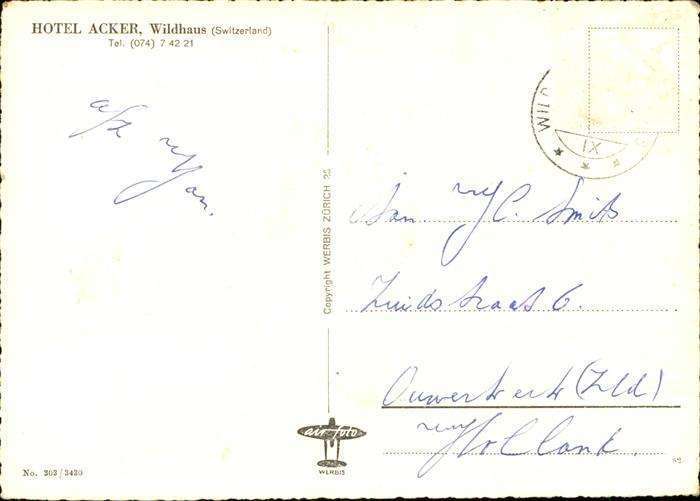 HOTEL ACKER, Wildhaus (Switzerland)
Tel. (074) 7 42 21
WILD
IX
Copyright WERBIS ZÜRICH 25
C. Smits
Zuidstraat 6.
Ouwerkerk (Zld)
Holland.
air-foto
WERBIS
No. 303/3420